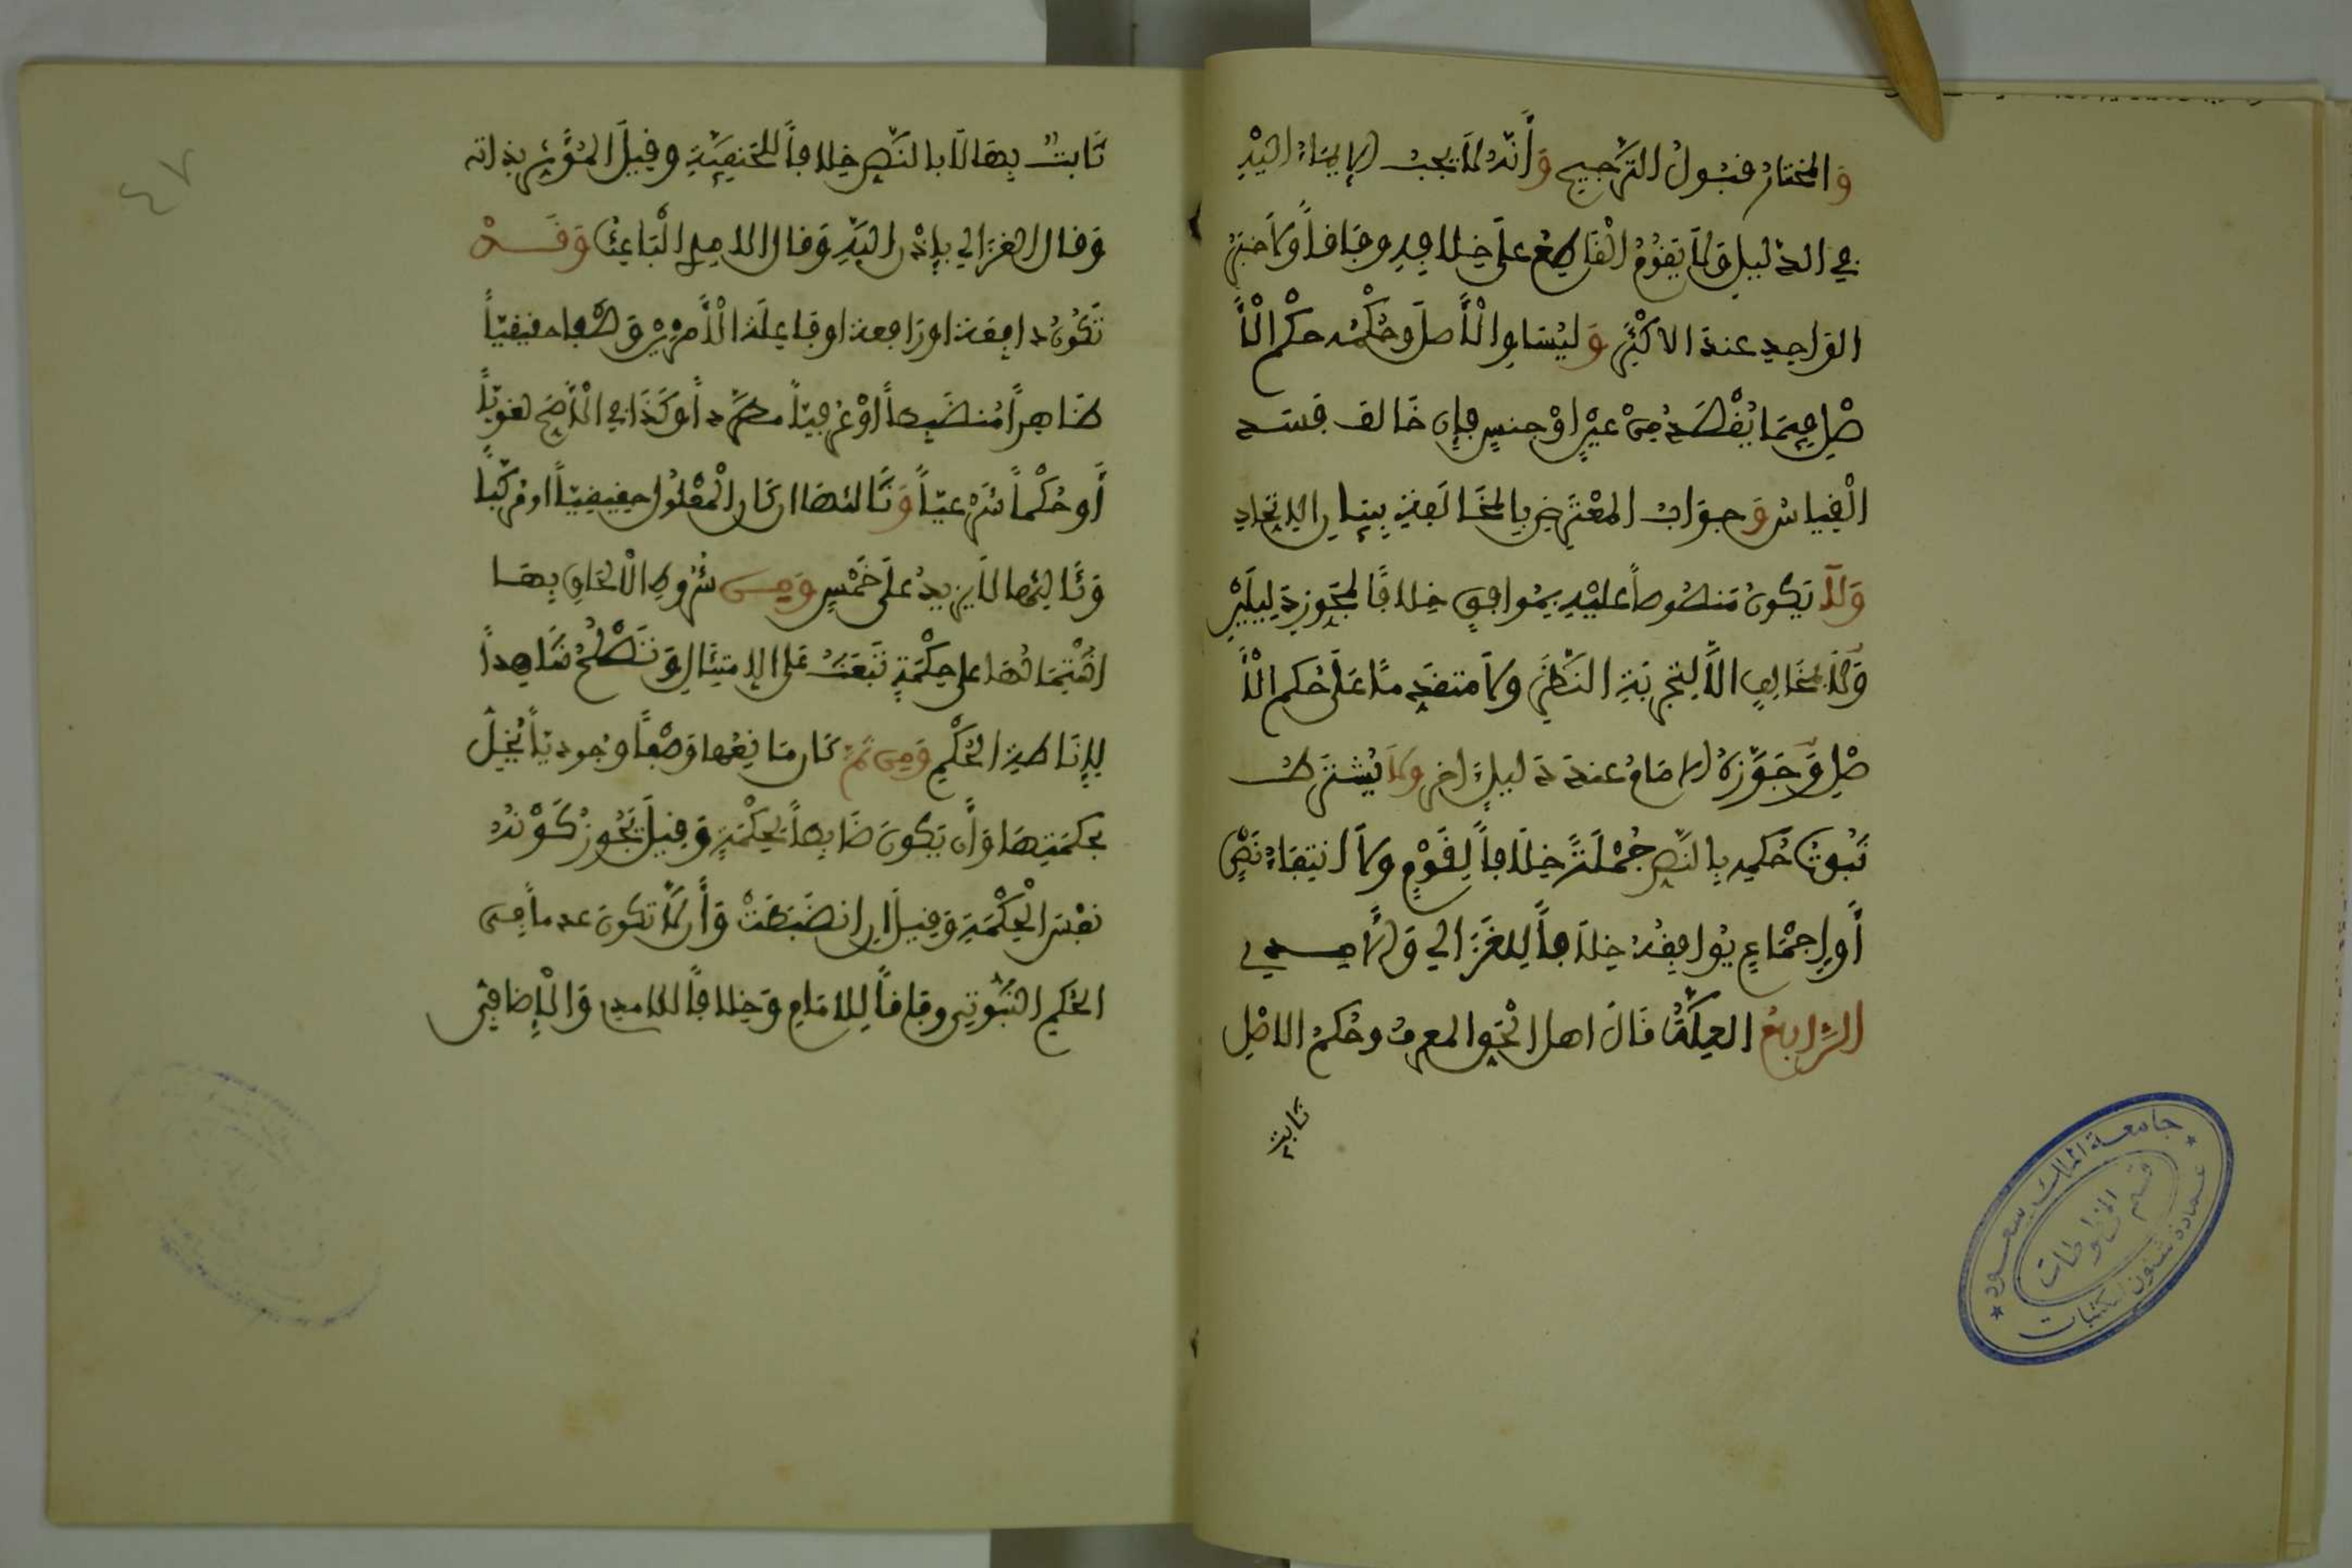 وَالمختارُ قبُولُ التَّرجيحِ وَأَنَّهُ لَا يجبُ الإيمَاءُ إليْهِ
في الدَّليلِ وَلَا يَقُومُ الْقَاطِعُ عَلَى خِلَافِهِ وِفَاقاً وَلَا خبَرُ
الوَاحِدِ عندَ الاكْثَرِ وَلْيُسَاوِ الْأَصلَ وَحُكْمُهُ حكْمَ الْأَ
صْلِ فِيمَا يُقْصَدُ مِنْ عَيْنٍ أَوْ جنسٍ فإِن خَالفَ فسَدَ
الْقِيَاسُ وَجوَابُ المعْتَرِضِ بِالمُخَالَفَةِ ببيَانِ الاِتِّحَادِ
وَلَا يَكُونُ مَنصُوصاً عَليْهِ بِمُوافِقٍ خِلَافًا لمجَوِّزِ دَلِيلَيْنِ
وَلَا بمُخَالِفٍ الَّا لِتَجْرِبَةِ النَّظَرِ وَلَا متقدِّمًا عَلَى حُكمِ الْأَ
صْلِ وَجَوَّزَهُ الامَامُ عندَ دَليلٍ اخرَ وَلَا يُشتَرَطُ
ثبُوتُ حُكمِهِ بِالنَّصِّ جُمْلَةً خِلَافاً لِقَوْمٍ وَلَا انتِفَاءُ نَصٍّ
أَوِ اجْمَاعٍ يُوَافِقُهُ خِلَافاً لِلغَزَالي وَالآمِدي
الرَّابِعُ العِلَّةُ قَالَ اهل الحَقِّ المعرفُ وحُكمُ الاصْلِ
ثابتٌ
ثَابتٌ بِهَا لَا بالنَّصِّ خِلَافاً لِلحَنفِيَّةِ وقِيلَ المُؤَثِّرُ بذاته
وَقال الغزَالي بإِذْنِ اللهِ وَقال الامدي الْبَاعِثُ وَقَدْ
تَكُونُ دافِعَة اورَافعة اوفاعلة الْأَمْرَيْنِ وَصْفاً حقيقيّاً
ظَاهِراً مُنضَبِطاً أوْ عُرفيّاً مطَّرداً وَكَذَا في الْأَصَحِّ لغويّاً
أَو حُكْماً شَرْعيّاً وَثَالثهَا ان كَانَ الْمَعْلُولُ حقيقيّاً او مُرَكَّباً
وَثَالِثُهَا لَا يزيدُ علَى خَمْسٍ وَمِن شُرُوطِ الْالْحَاقِ بِهَا
اشْتِمَالُهَا على حِكْمَةٍ تَبعَثُ عَلى الامتِثَالِ وَتَصْلُحُ شَاهِداً
لِإِنَاطَةِ الحُكْمِ وَمِن ثَمَّ كَانَ مَانِعُهَا وَصْفاً وجوديّاً يُخِلُّ
بحكمَتِهَا وَأَن يَكُونَ ضَابِطاً لِحِكْمَةٍ وَقِيلَ يَجُوزُ كَوْنُهُ
نفْسَ الْحِكْمَةِ وَقِيلَ ان انضَبَطَتْ وَأَن لَا تكُونَ عدماً فِي
الحُكمِ الثُّبُوتِي وِفَاقاً لِلامَامِ وَخِلَافاً للامدي وَالْإِضَافِيُّ
٤٧
جامعة الملك سعود
عمادة شئون المكتبات
قسم المخطوطات